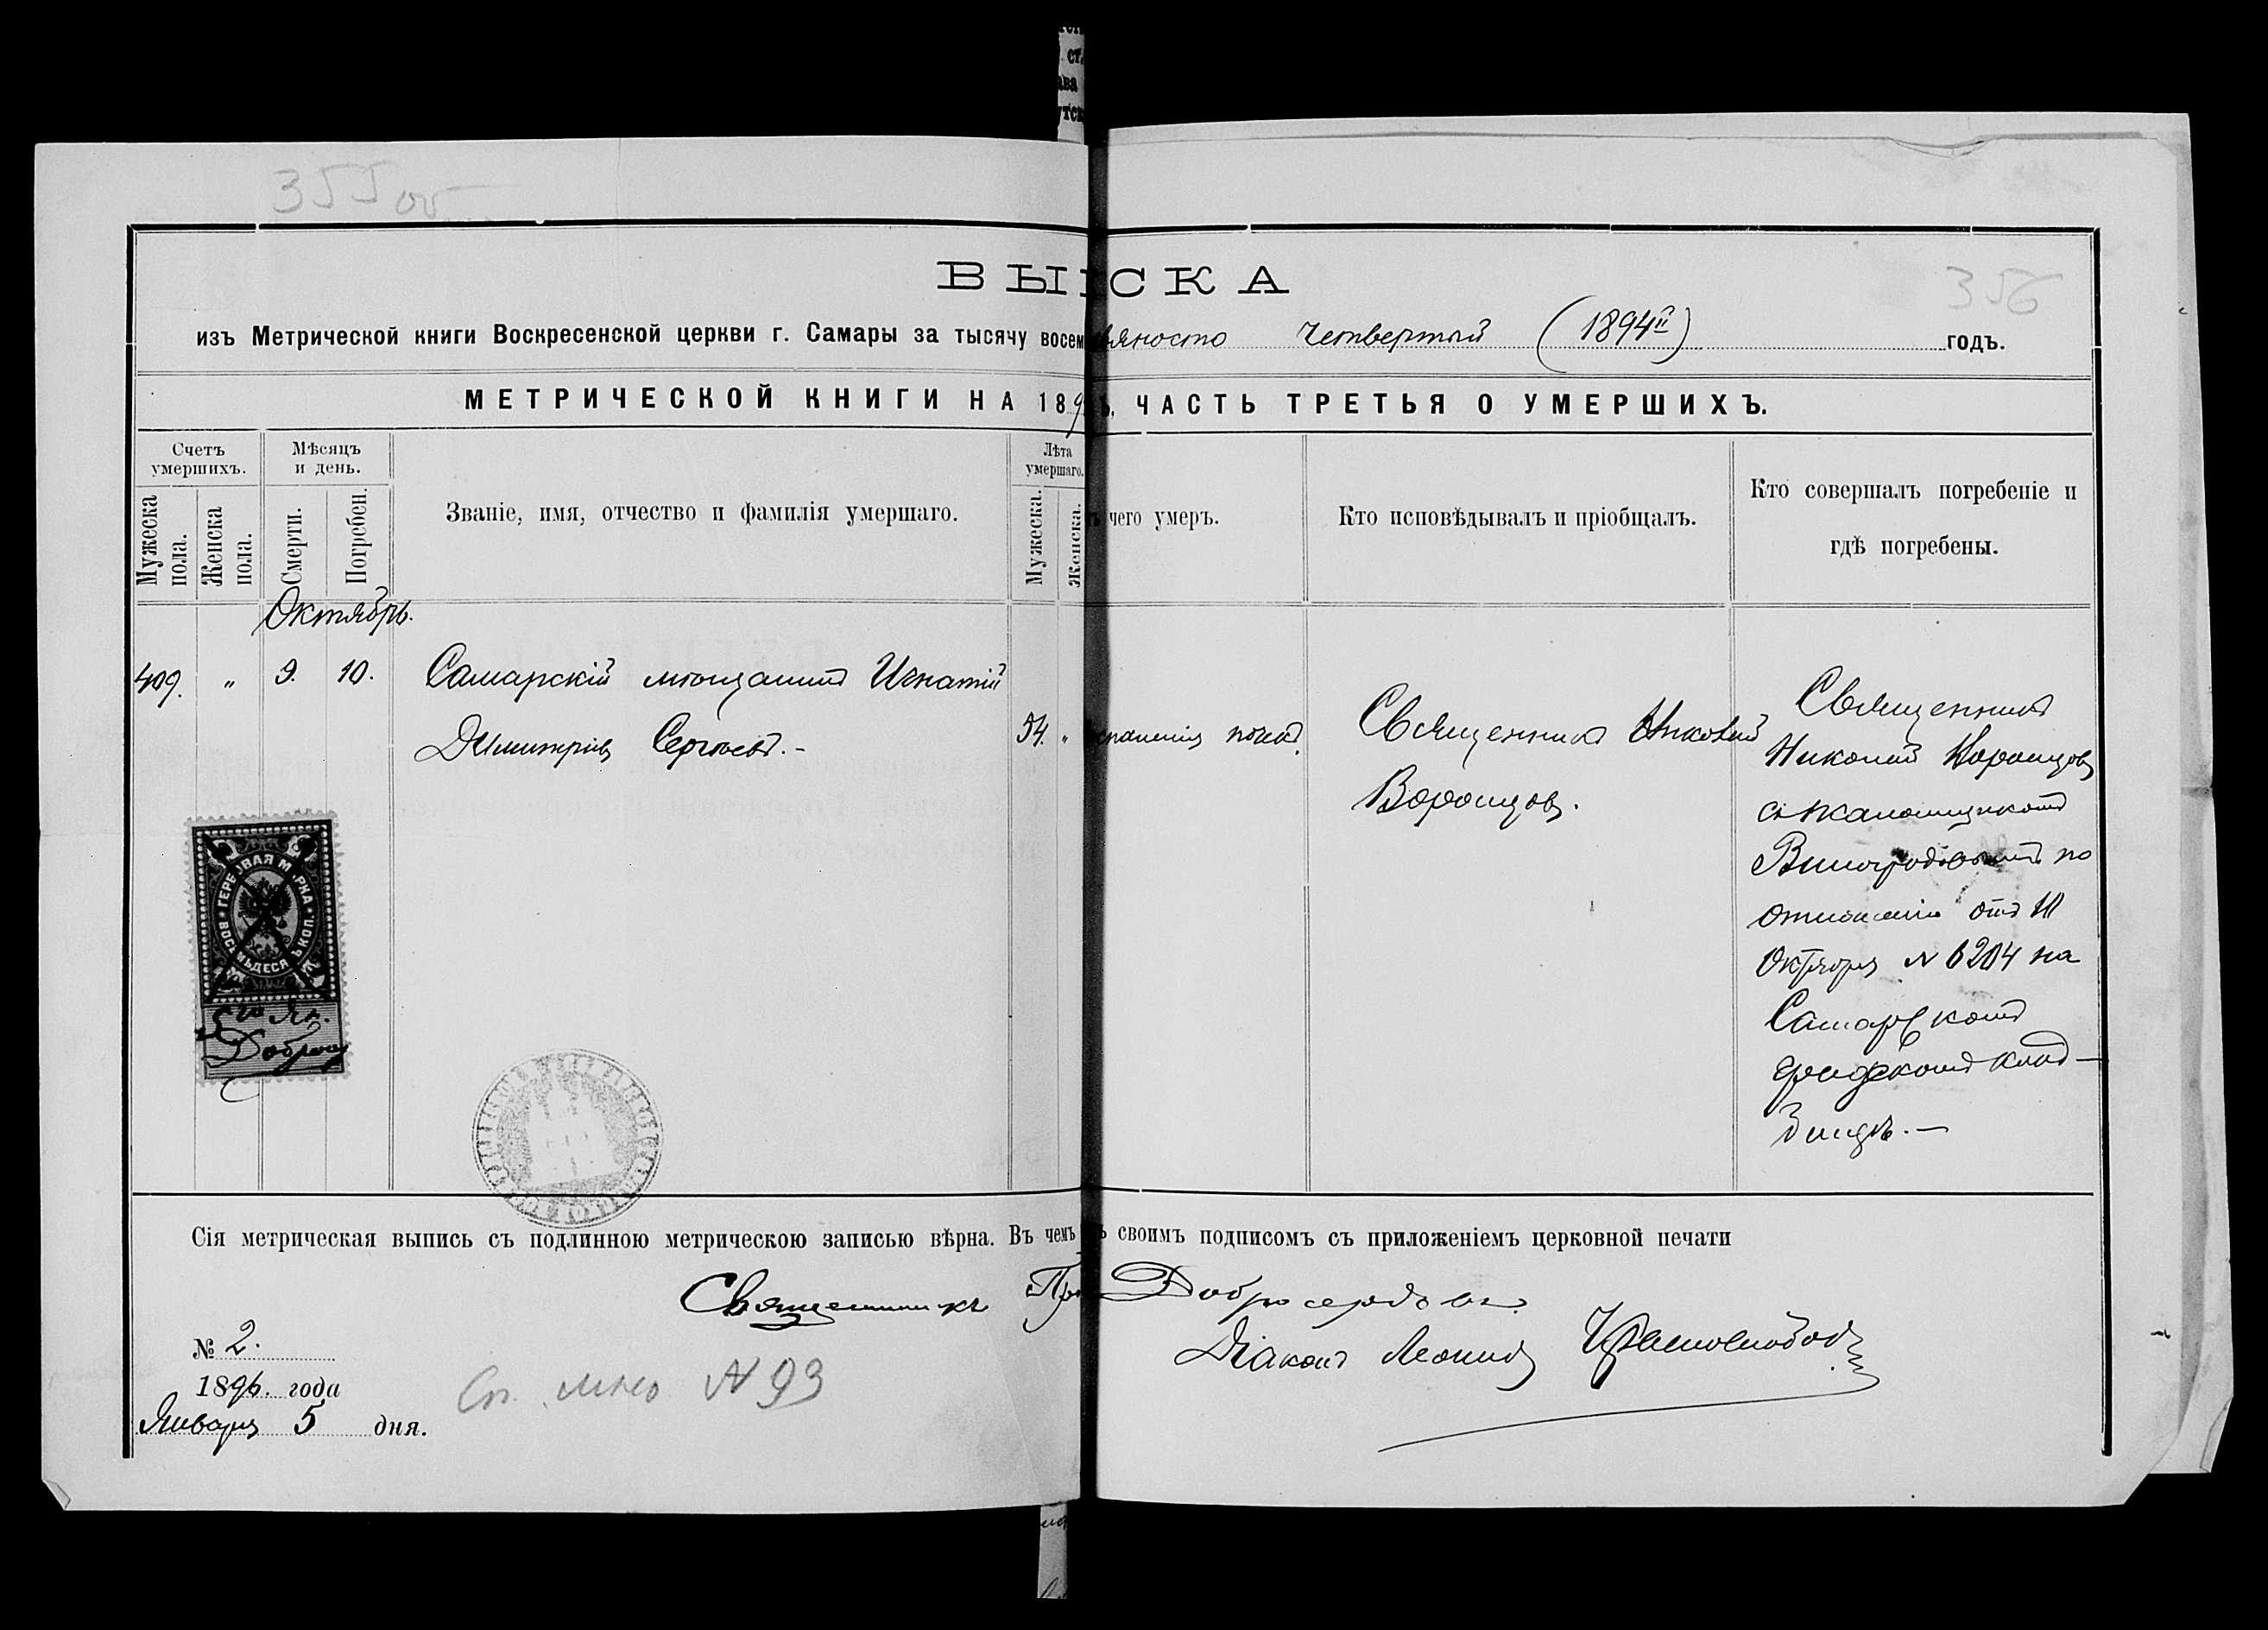 355 об
356
ВЫ СКА
изъ Метрической книги Воскресенской церкви г. Самары за тысячу восем вяносто четвертый (1894й) годъ.
МЕТРИЧЕСКОЙ КНИГИ НА 189 ЧАСТЬ ТРЕТЬЯ О УМЕРШИХЪ.
Счетъ умершихъ.
Мужеска пола.
Женска пола.
Мѣсяцъ и день.
Смерти.
Погребен.
Званіе, имя, отчество и фамилія умершаго.
Лѣта умершаго.
Мужеска.
Женска.
чего умеръ.
Кто исповѣдывалъ и пріобщалъ.
Кто совершалъ погребеніе и
гдѣ погребены.
Октябрь.
409. " 9. 10.
Самарскій мѣщанинъ Игнатій
Димитріевъ Сергѣевъ.-
54. "
спаленія почекъ.
Священникъ Николай
Воронцовъ.
Священникъ
Николай Воронцовъ
съ псаломщикомъ
Виноградовымъ по
отношенію отъ 10
Октября № 6204 на
Самарскомъ
градскомъ клад-
бищѣ.-
ГЕРБОВАЯ МАРКА
ВОСЕМЬДЕСЯТЪ КОП.
5го Ян.
Сія метрическая выпись съ подлинною метрическою записью вѣрна. Въ чемъ ъ своимъ подписомъ съ приложеніемъ церковной печати
Священникъ Добросердовъ.
Діаконъ Леонидъ
№ 2.
1896. года
Января 5 дня.
№ 93